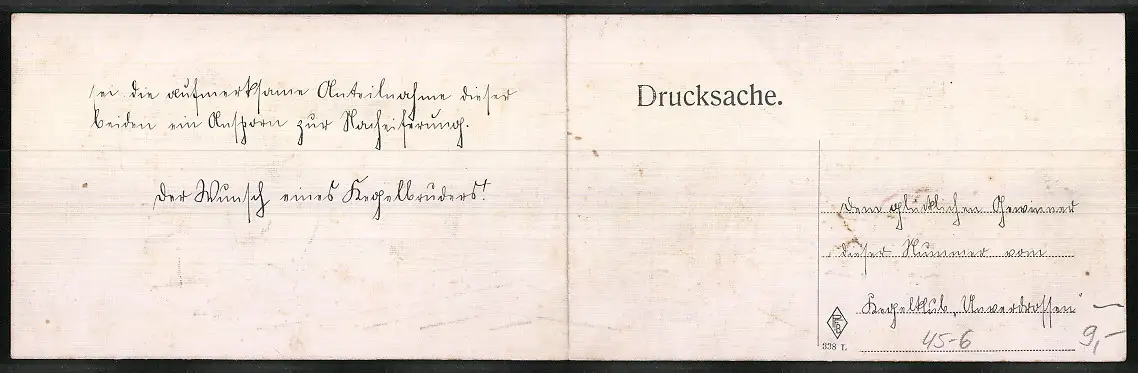 sei die aufmerksame Anteilnahme dieser
beiden ein Ansporn zur Nacheiferung.
Der Wunsch eines Kegelbruders!
Drucksache.
Dem glücklichen Gewinner
dieser Nummer vom
Kegelklub „Unverdrossen"
45-6
9,-
338 L